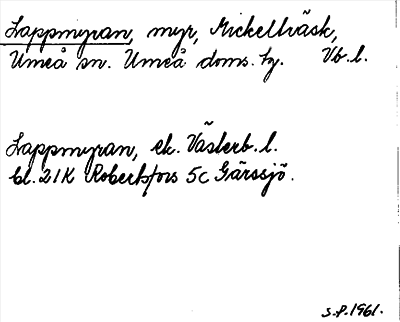 Lappmyran, myr, Mickelträsk,
Umeå sn. Umeå doms. hg. Vb. l.
Lappmyran, ek. Västerb. l.
bl. 21K Robertsfors 5c Gärssjö.
S.P. 1961.